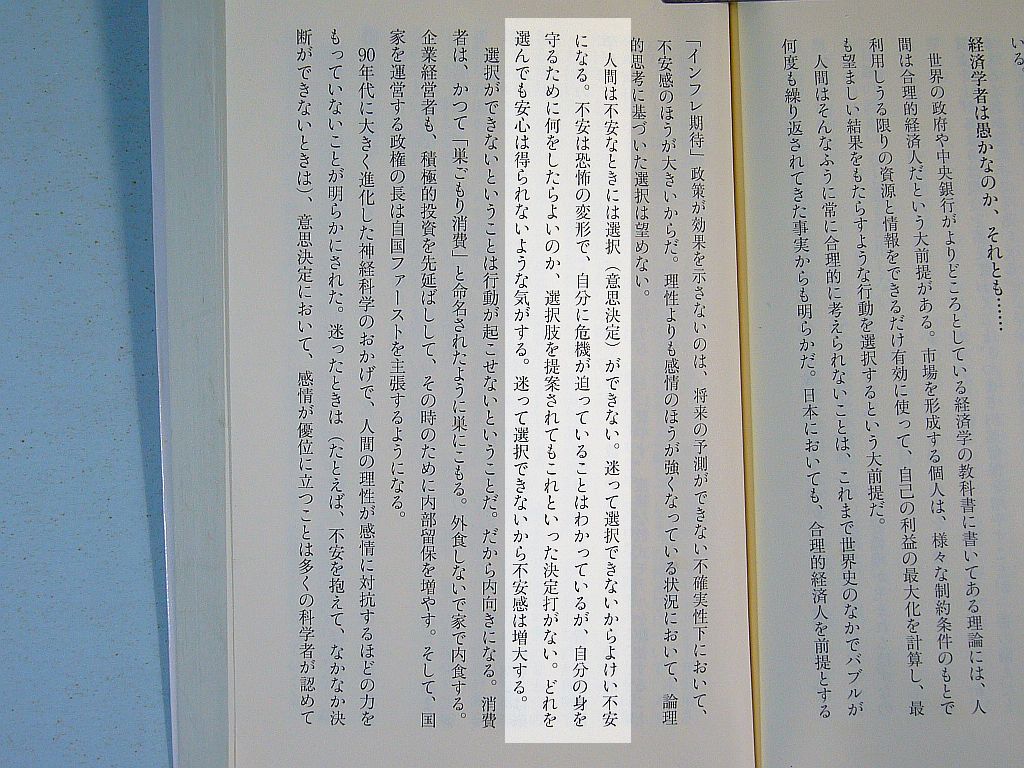 いる。
経済学者は愚かなのか、それとも……
世界の政府や中央銀行がよりどころとしている経済学の教科書に書いてある理論には、人
間は合理的経済人だという大前提がある。市場を形成する個人は、様々な制約条件のもとで
利用しうる限りの資源と情報をできるだけ有効に使って、自己の利益の最大化を計算し、最
も望ましい結果をもたらすような行動を選択するという大前提だ。
人間はそんなふうに常に合理的に考えられないことは、これまで世界史のなかでバブルが
何度も繰り返されてきた事実からも明らかだ。日本においても、合理的経済人を前提とする
「インフレ期待」政策が効果を示さないのは、将来の予測ができない不確実性下において、
不安感のほうが大きいからだ。理性よりも感情のほうが強くなっている状況において、論理
的思考に基づいた選択は望めない。
人間は不安なときには選択（意思決定）ができない。迷って選択できないからよけい不安
になる。不安は恐怖の変形で、自分に危機が迫っていることはわかっているが、自分の身を
守るために何をしたらよいのか、選択肢を提案されてもこれといった決定打がない。どれを
選んでも安心は得られないような気がする。迷って選択できないから不安感は増大する。
選択ができないということは行動が起こせないということだ。だから内向きになる。消費
者は、かつて「巣ごもり消費」と命名されたように巣にこもる。外食しないで家で内食する。
企業経営者も、積極的投資を先延ばしして、その時のために内部留保を増やす。そして、国
家を運営する政権の長は自国ファーストを主張するようになる。
90年代に大きく進化した神経科学のおかげで、人間の理性が感情に対抗するほどの力を
もっていないことが明らかにされた。迷ったときは（たとえば、不安を抱えて、なかなか決
断ができないときは）、意思決定において、感情が優位に立つことは多くの科学者が認めて